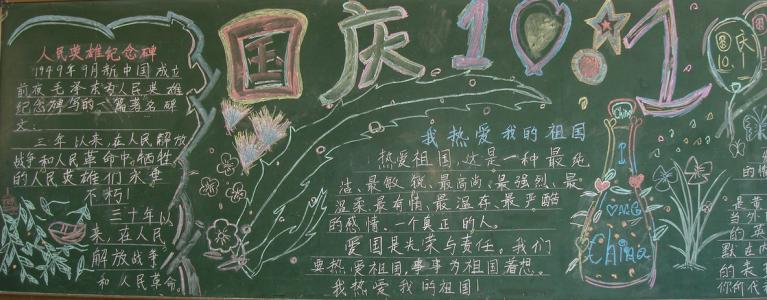 人民英雄纪念碑
1949年9月新中国成立
前夜毛泽东为人民英雄
纪念碑写的一篇著名碑
文:
三年以来,在人民解放
战争和人民革命中牺牲
的人民英雄们永垂
不朽!
三十年以
来,在人民
解放战争
和人民革命
国庆10·1
我热爱我的祖国
热爱祖国,这是一种最纯
洁、最敏锐、最高尚、最强烈、最
温柔、最有情、最温存、最严酷
的感情。一个真正的人。
爱国是光荣与责任。我们
要热爱祖国,事事为祖国着想。
我热爱我的祖国!
China
I
♡MG
China
国庆
10.1
的
是黄
当外
的英
默在
的表
你何代